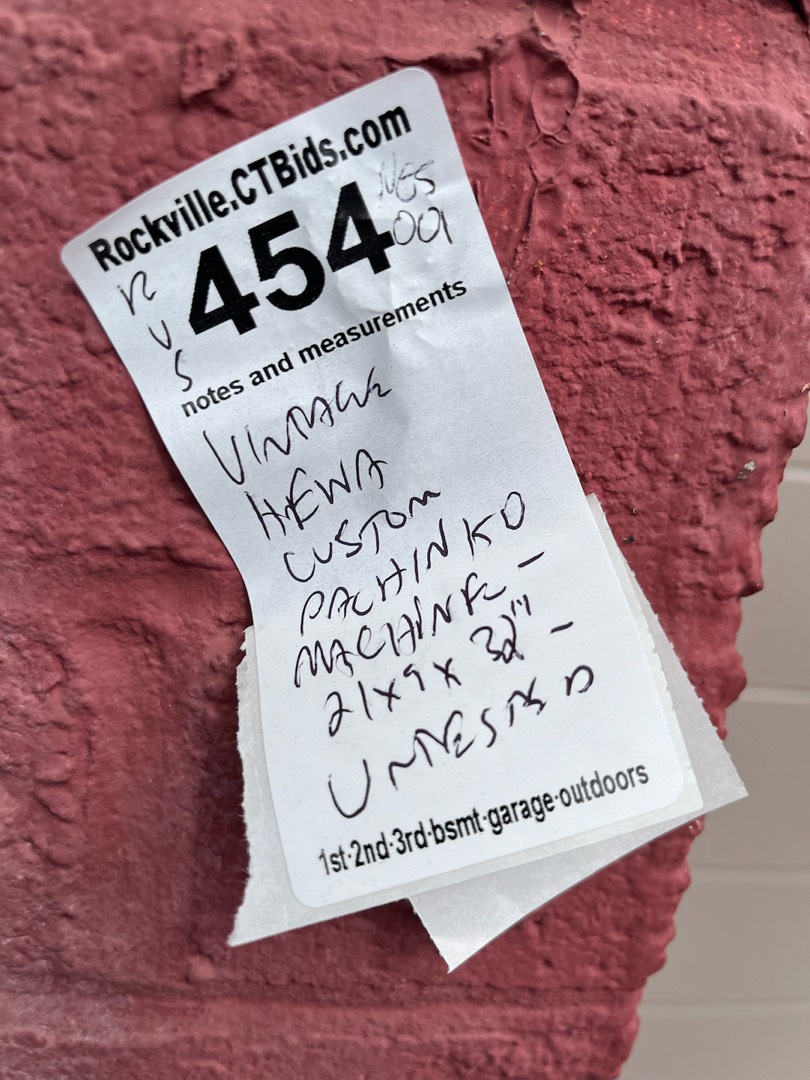 Rockville.CTBids.com
454
001
RUS
notes and measurements
VINTAGE
HEWA
CUSTOM
PACHINKO
MACHINE -
21x9x 32" -
UNTESTED
1st·2nd·3rd·bsmt·garage·outdoors